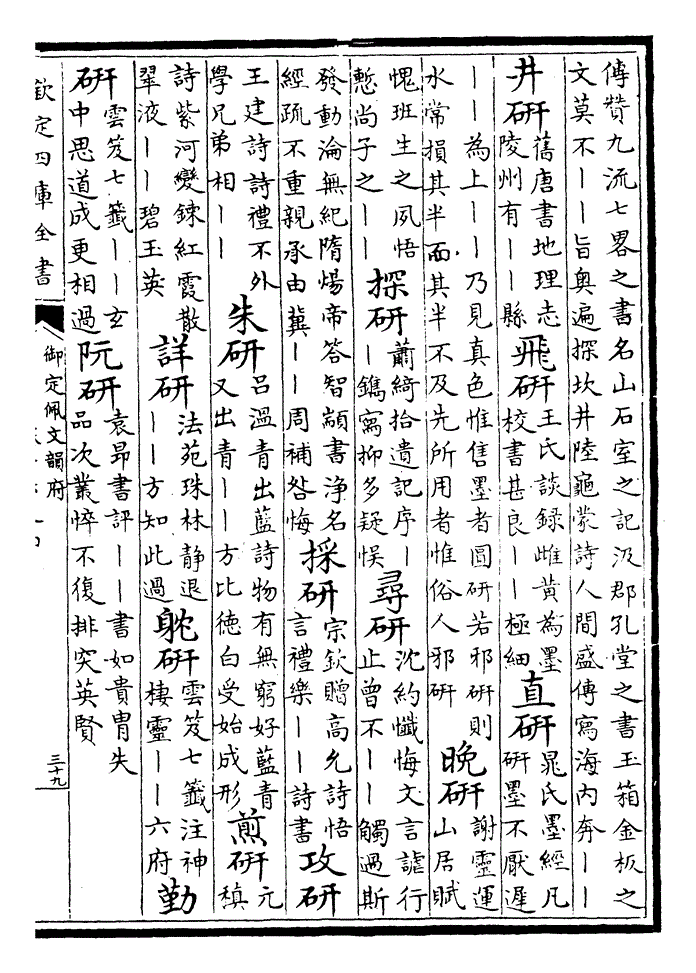 傳贊九流七畧之書名山石室之記汲郡孔堂之書玉箱金板之
文莫不丨丨旨奥遍探坎井陸龜蒙詩人間盛傳寫海内奔丨丨
井研
舊唐書地理志
陵州有丨丨縣
飛研
王氏談録雌黄為墨
校書甚良丨丨極細
直研
晁氏墨經凡
研墨不厭遲
丨丨為上丨丨乃見真色惟售墨者圓研若邪研則
水常損其半而其半不及先所用者惟俗人邪研
晚研
謝靈運
山居賦
愧班生之夙悟
慙尚子之丨丨
探研
蕭綺拾遺記序丨
丨鐫寫抑多疑悞
尋研
沈約懺悔文言謔行
止曾不丨丨觸過斯
發動淪無紀隋煬帝答智顗書浄名
經疏不重親承由冀丨丨周補咎悔
採研
宗欽贈高允詩悟
言禮樂丨丨詩書
攻研
王建詩詩禮不外
學兄弟相丨丨
朱研
吕温青出藍詩物有無窮好藍青
又出青丨丨方比徳白受始成形
煎研
元
稹
詩紫河變鍊紅霞散
翠液丨丨碧玉英
詳研
法苑珠林静退
丨丨方知此過
躭研
雲笈七籤注神
棲靈丨丨六府
勤
研
雲笈七籤丨丨玄
中思道成更相過
阮研
袁昂書評丨丨書如貴胄失
品次叢悴不復排突英賢
欽定四庫全書
御定佩文韻府
三十九